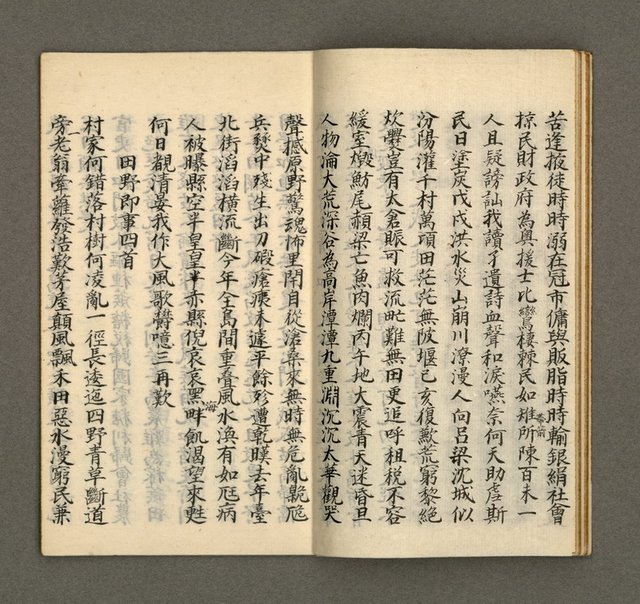 苦逢掖徒時時溺在冠市傭與販脂時時輸銀絹社會
掠民財政府為奧援士比鸞棲棘民如雉所陳百未一
人且疑謗訕我讀了遺詩血聲和淚嚥奈何天助虐斯
民日塗炭戊戌洪水災山崩川潦漫人向呂梁沈城似
汾陽灌千村萬頃田茫茫無陂堰己亥復歉荒窮黎絕
炊爨豈有太倉賑可救流氓難無田更追呼租稅不容
緩室燬魴尾赬梁亡魚肉爛丙午地大震青天迷昏旦
人物淪大荒深谷為高岸潭潭九重淵沉沉太華觀哭
聲撼原野驚魂怖里閈自從滄海來無時無危亂
兵燹中殘生出刀瘡痍未遽平餘殄遭乾暵去年臺
北街滔滔橫流斷今年全島間重疊風水渙有如尫病
人被曝懸空半皇皇半赤縣倪哀哀黑海畔飢渴望來甦
何日覩清晏我作大風歌鬱噫三再歎
田野即事四首
村家何錯落村樹何淩亂一徑長逶迤四野青草斷道
旁一老翁牽離發浩歎茅屋顛風飄禾田惡水漫窮民兼